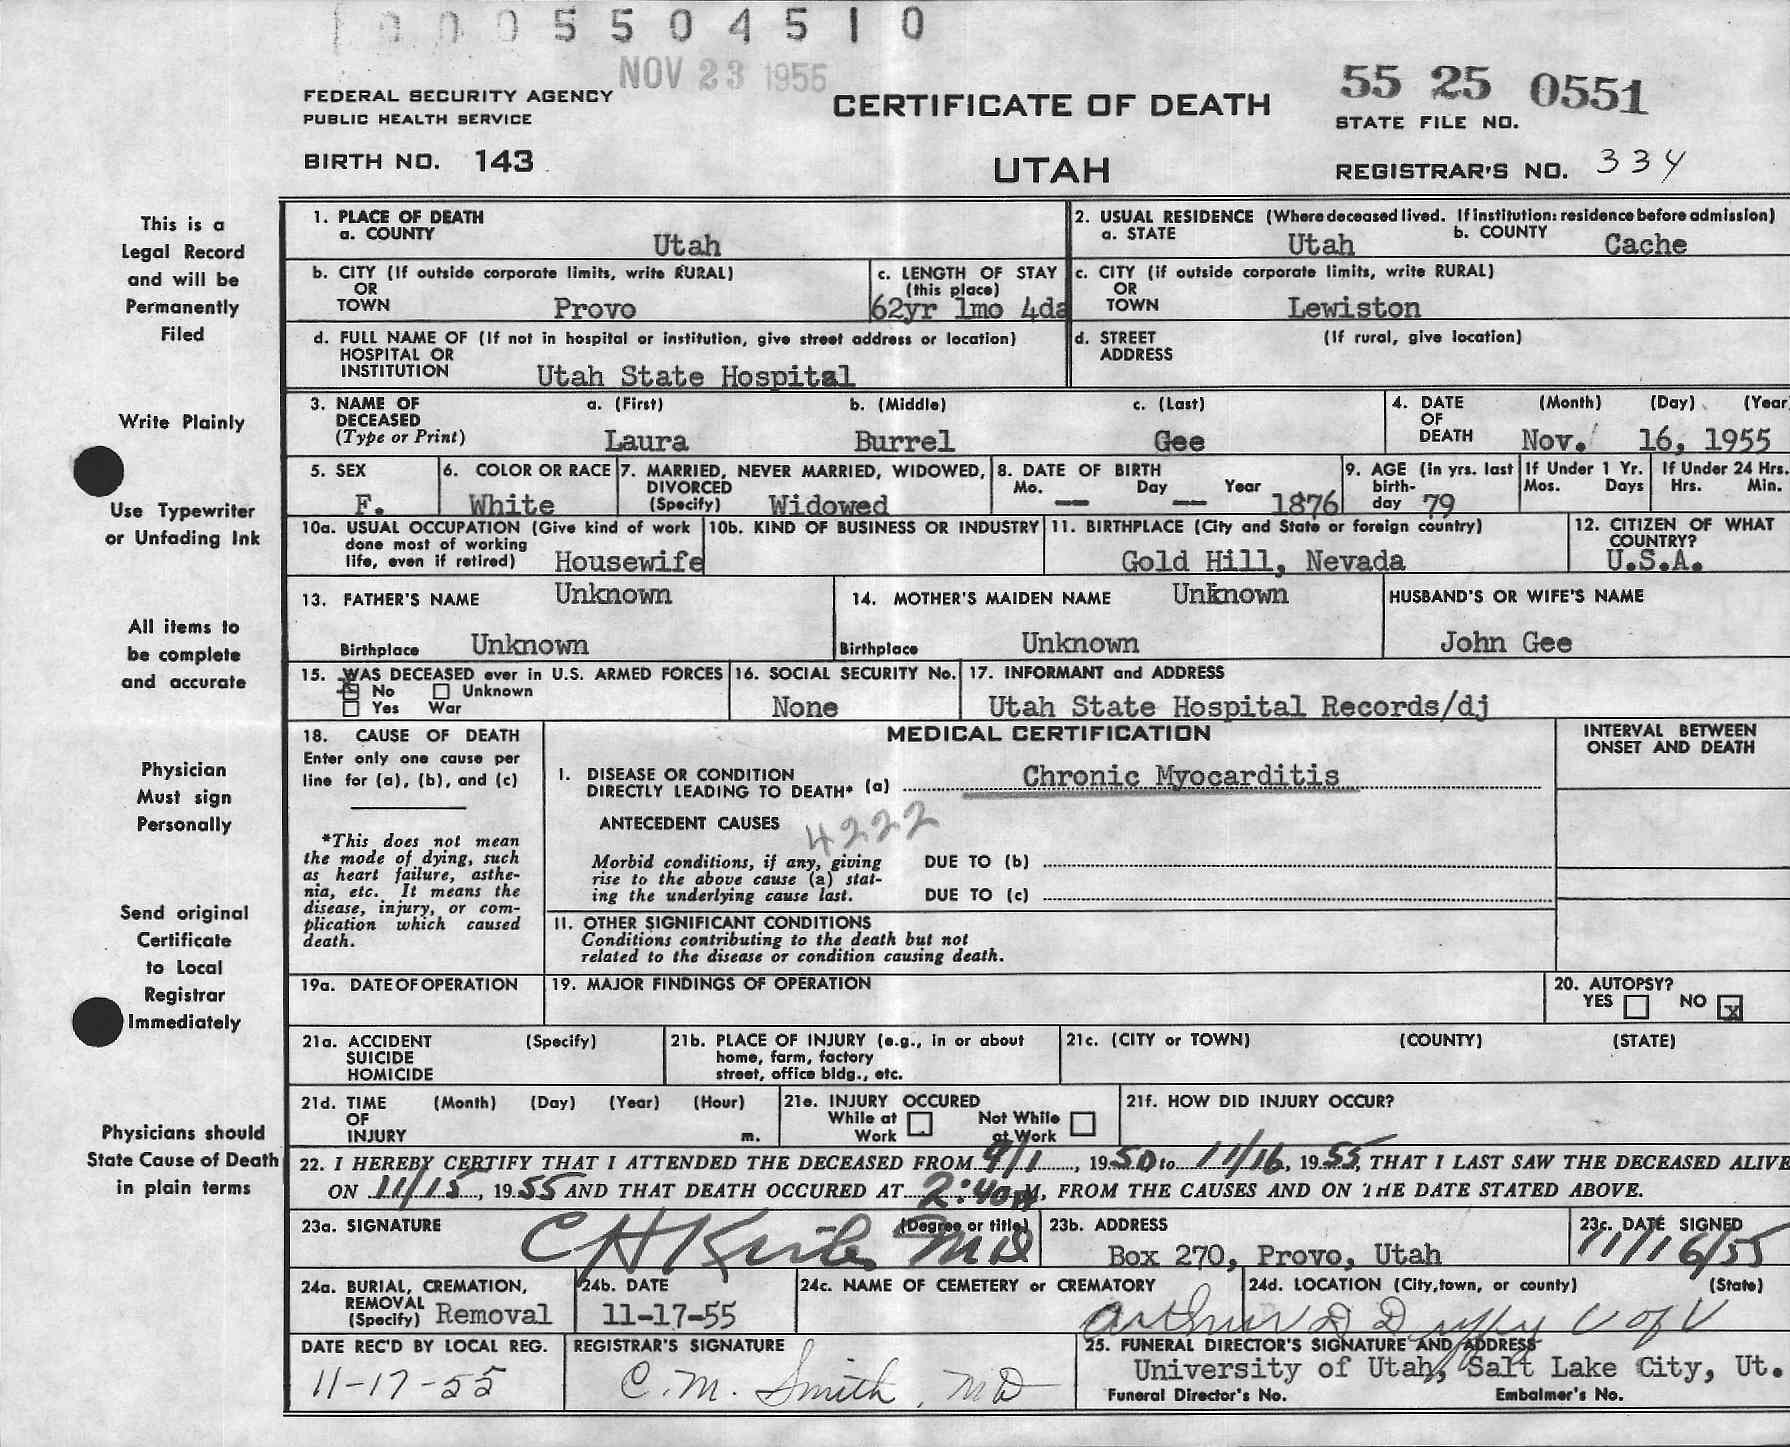 0005504510
NOV 23 1955
FEDERAL SECURITY AGENCY
PUBLIC HEALTH SERVICE
CERTIFICATE OF DEATH
55 25 0551
STATE FILE NO.
BIRTH NO. 143
UTAH
REGISTRAR'S NO. 334
This is a
Legal Record
and will be
Permanently
Filed
Write Plainly
Use Typewriter
or Unfading Ink
All items to
be complete
and accurate
Physician
Must sign
Personally
Send original
Certificate
to Local
Registrar
Immediately
Physicians should
State Cause of Death
in plain terms
1. PLACE OF DEATH
a. COUNTY
Utah
2. USUAL RESIDENCE (Where deceased lived. If institution: residence before admission)
a. STATE Utah b. COUNTY Cache
b. CITY (If outside corporate limits, write RURAL)
OR
TOWN Provo
c. LENGTH OF STAY
(this place)
62yr 1mo 4da
c. CITY (if outside corporate limits, write RURAL)
OR
TOWN Lewiston
d. FULL NAME OF (If not in hospital or institution, give street address or location)
HOSPITAL OR
INSTITUTION Utah State Hospital
d. STREET (If rural, give location)
ADDRESS
3. NAME OF
DECEASED
(Type or Print)
a. (First) b. (Middle) c. (Last)
Laura Burrel Gee
4. DATE (Month) (Day) (Year
OF
DEATH Nov. 16, 1955
5. SEX
F.
6. COLOR OR RACE
White
7. MARRIED, NEVER MARRIED, WIDOWED,
DIVORCED
(Specify) Widowed
8. DATE OF BIRTH
Mo. Day Year
-- -- 1876
9. AGE (in yrs. last
birth-
day 79
If Under 1 Yr.
Mos. Days
If Under 24 Hrs.
Hrs. Min.
10a. USUAL OCCUPATION (Give kind of work
done most of working
life, even if retired) Housewife
10b. KIND OF BUSINESS OR INDUSTRY
11. BIRTHPLACE (City and State or foreign country)
Gold Hill, Nevada
12. CITIZEN OF WHAT
COUNTRY?
U.S.A.
13. FATHER'S NAME Unknown
Birthplace Unknown
14. MOTHER'S MAIDEN NAME Unknown
Birthplace Unknown
HUSBAND'S OR WIFE'S NAME
John Gee
15. WAS DECEASED ever in U.S. ARMED FORCES
No Unknown
Yes War
16. SOCIAL SECURITY No.
None
17. INFORMANT and ADDRESS
Utah State Hospital Records/dj
18. CAUSE OF DEATH
Enter only one cause per
line for (a), (b), and (c)
*This does not mean
the mode of dying, such
as heart failure, asthe-
nia, etc. It means the
disease, injury, or com-
plication which caused
death.
MEDICAL CERTIFICATION
INTERVAL BETWEEN
ONSET AND DEATH
I. DISEASE OR CONDITION
DIRECTLY LEADING TO DEATH* (a) Chronic Myocarditis
ANTECEDENT CAUSES 4222
Morbid conditions, if any, giving
rise to the above cause (a) stat-
ing the underlying cause last.
DUE TO (b)
DUE TO (c)
II. OTHER SIGNIFICANT CONDITIONS
Conditions contributing to the death but not
related to the disease or condition causing death.
19a. DATE OF OPERATION
19. MAJOR FINDINGS OF OPERATION
20. AUTOPSY?
YES NO X
21a. ACCIDENT (Specify)
SUICIDE
HOMICIDE
21b. PLACE OF INJURY (e.g., in or about
home, farm, factory
street, office bldg., etc.
21c. (CITY or TOWN) (COUNTY) (STATE)
21d. TIME (Month) (Day) (Year) (Hour)
OF
INJURY m.
21e. INJURY OCCURED
While at Work
Not While at Work
21f. HOW DID INJURY OCCUR?
22. I HEREBY CERTIFY THAT I ATTENDED THE DECEASED FROM 9/1, 1950 to 11/16, 1955, THAT I LAST SAW THE DECEASED ALIVE
ON 11/15, 1955 AND THAT DEATH OCCURED AT 2:40 p M, FROM THE CAUSES AND ON THE DATE STATED ABOVE.
23a. SIGNATURE (Degree or title)
C H MD
23b. ADDRESS
Box 270, Provo, Utah
23c. DATE SIGNED
11/16/55
24a. BURIAL, CREMATION,
REMOVAL
(Specify) Removal
24b. DATE
11-17-55
24c. NAME OF CEMETERY or CREMATORY
24d. LOCATION (City, town, or county) (State)
Arthur D Duffy U of U
DATE REC'D BY LOCAL REG.
11-17-55
REGISTRAR'S SIGNATURE
C. M. Smith, MD
25. FUNERAL DIRECTOR'S SIGNATURE AND ADDRESS
University of Utah, Salt Lake City, Ut.
Funeral Director's No. Embalmer's No.